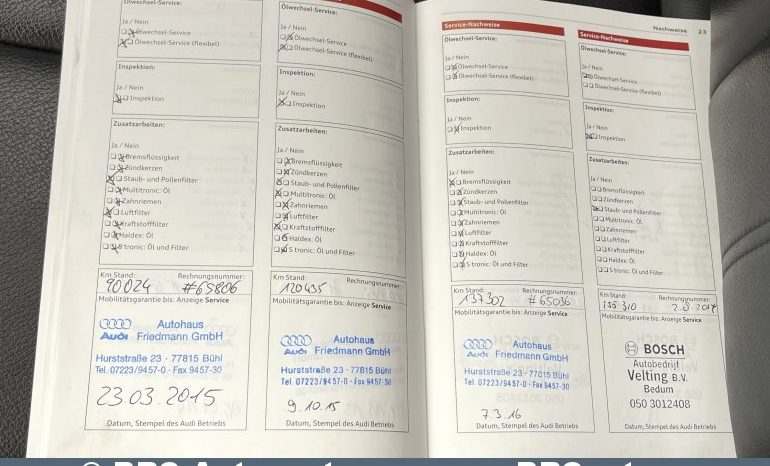 Ölwechsel-Service:
Ja / Nein
Ölwechsel-Service
Ölwechsel-Service (flexibel)
Inspektion:
Ja / Nein
Inspektion
Zusatzarbeiten:
Ja / Nein
Bremsflüssigkeit
Zündkerzen
Staub- und Pollenfilter
Multitronic: Öl
Zahnriemen
Luftfilter
Kraftstofffilter
Haldex: Öl
S tronic: Öl und Filter
Km Stand: Rechnungsnummer:
90024 #65806
Mobilitätsgarantie bis: Anzeige Service
Audi
Autohaus
Friedmann GmbH
Hurststraße 23 · 77815 Bühl
Tel. 07223/9457-0 · Fax 9457-30
23.03.2015
Datum, Stempel des Audi Betriebs
Ölwechsel-Service:
Ja / Nein
Ölwechsel-Service
Ölwechsel-Service (flexibel)
Inspektion:
Ja / Nein
Inspektion
Zusatzarbeiten:
Ja / Nein
Bremsflüssigkeit
Zündkerzen
Staub- und Pollenfilter
Multitronic: Öl
Zahnriemen
Luftfilter
Kraftstofffilter
Haldex: Öl
S tronic: Öl und Filter
Km Stand: Rechnungsnummer:
120435
Mobilitätsgarantie bis: Anzeige Service
Audi
Autohaus
Friedmann GmbH
Hurststraße 23 · 77815 Bühl
Tel. 07223/9457-0 · Fax 9457-30
9.10.15
Datum, Stempel des Audi Betriebs
Nachweise 23
Service-Nachweise
Ölwechsel-Service:
Ja / Nein
Ölwechsel-Service
Ölwechsel-Service (flexibel)
Inspektion:
Ja / Nein
Inspektion
Zusatzarbeiten:
Ja / Nein
Bremsflüssigkeit
Zündkerzen
Staub- und Pollenfilter
Multitronic: Öl
Zahnriemen
Luftfilter
Kraftstofffilter
Haldex: Öl
S tronic: Öl und Filter
Km Stand: Rechnungsnummer:
137302 #65036
Mobilitätsgarantie bis: Anzeige Service
Audi
Autohaus
Friedmann GmbH
Hurststraße 23 · 77815 Bühl
Tel. 07223/9457-0 · Fax 9457-30
7.3.16
Datum, Stempel des Audi Betriebs
Service-Nachweise
Ölwechsel-Service:
Ja / Nein
Ölwechsel-Service
Ölwechsel-Service (flexibel)
Inspektion:
Ja / Nein
Inspektion
Zusatzarbeiten:
Ja / Nein
Bremsflüssigkeit
Zündkerzen
Staub- und Pollenfilter
Multitronic: Öl
Zahnriemen
Luftfilter
Kraftstofffilter
Haldex: Öl
S tronic: Öl und Filter
Km Stand: Rechnungsnummer:
155 310
Mobilitätsgarantie bis: Anzeige Service
BOSCH
Autobedrijf
Velting B.V.
Bedum
050 3012408
Datum, Stempel des Audi Betriebs